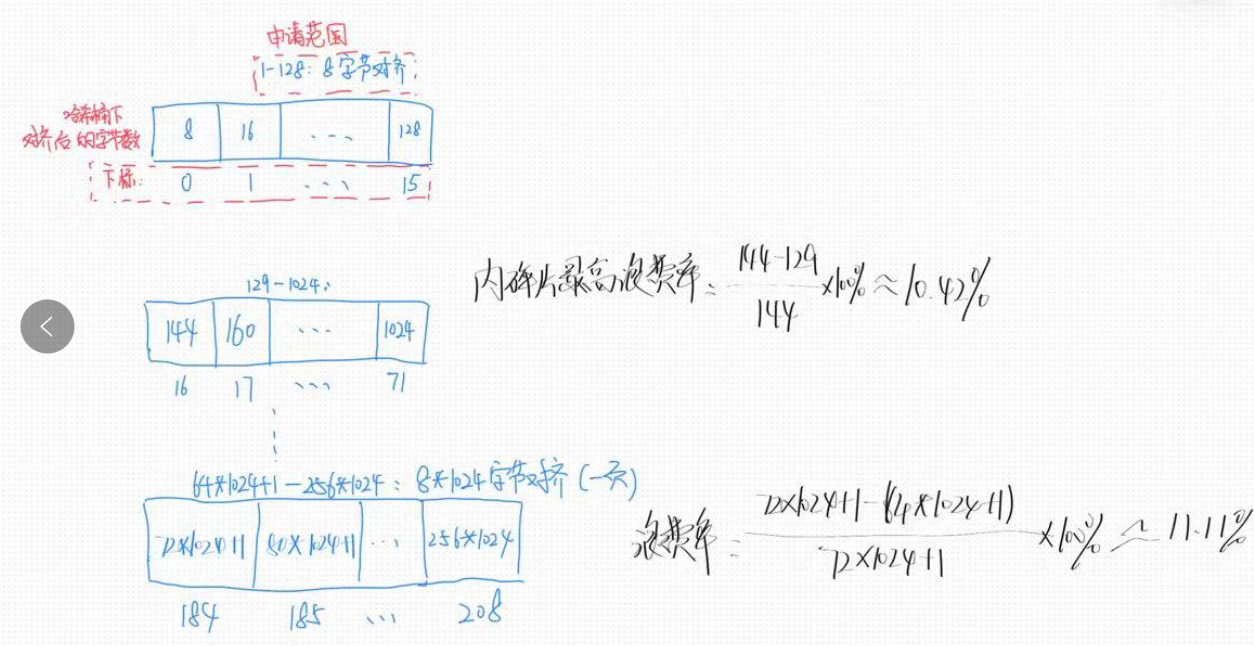 申请范围
1-128: 8字节对齐
哈希桶下
对齐后的字节数
8 16 ... 128
下标: 0 1 ... 15
129-1024:
144 160 ... 1024
16 17 ... 71
内碎片最高浪费率: (144-129)/144 ×100% ≈ 10.42%
64*1024+1-256*1024: 8*1024字节对齐(一页)
72×1024+1 80×1024+1 ... 256*1024
184 185 ... 208
浪费率: (72×1024+1-(64×1024+1))/(72×1024+1) ×100% ≈ 11.11%